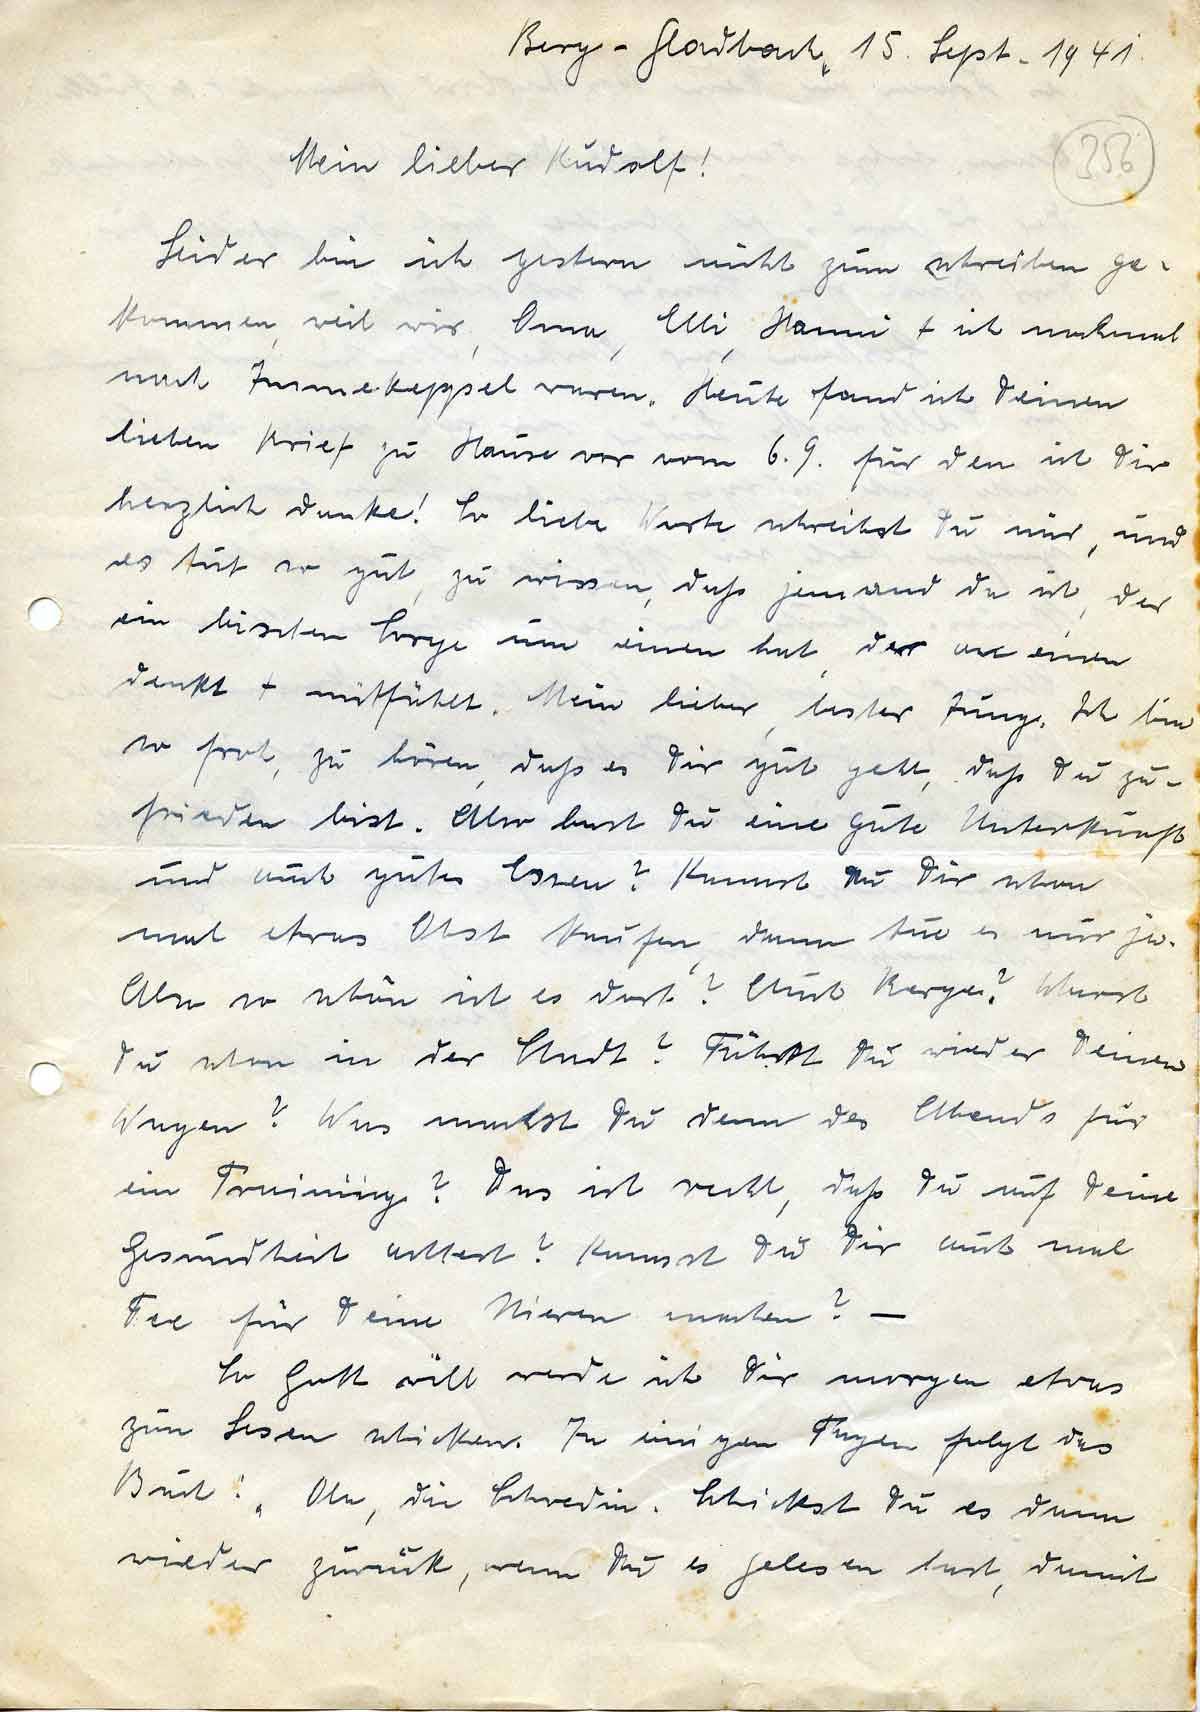 Berg-Gladbach, 15. Sept. 1941.
356
Mein lieber Rudolf!
Leider bin ich gestern nicht zum schreiben ge-
kommen, weil wir, Oma, Elli, Hanni + ich nochmal
nach Immekeppel waren. Heute fand ich Deinen
lieben Brief zu Hause vor vom 6.9. für den ich Dir
herzlich danke! So liebe Worte schreibst Du mir, und
es tut so gut, zu wissen, daß jemand da ist, der
ein bischen Sorge um einen hat, der an einen
denkt + mitfühlt. Mein lieber, bester Junge. Ich bin
so froh, zu hören, daß es Dir gut geht, daß Du zu-
frieden bist. Also hast Du eine gute Unterkunft
und auch gutes Essen? Kannst Du Dir schon
mal etwas Obst kaufen, dann tue es nur ja.
Also so schön ist es dort? Auch Berge? Warst
Du schon in der Stadt? Fährst Du wieder Deinen
Wagen? Was machst Du denn des Abends für
ein Training? Das ist recht, daß Du auf Deine
Gesundheit achtest? Kannst Du Dir auch mal
Tee für Deine Nieren machen? —
So Gott will werde ich Dir morgen etwas
zum Lesen schicken. In einigen Tagen folgt das
Buch: „Ola, die Schwedin. Schickst Du es dann
wieder zurück, wenn Du es gelesen hast, damit